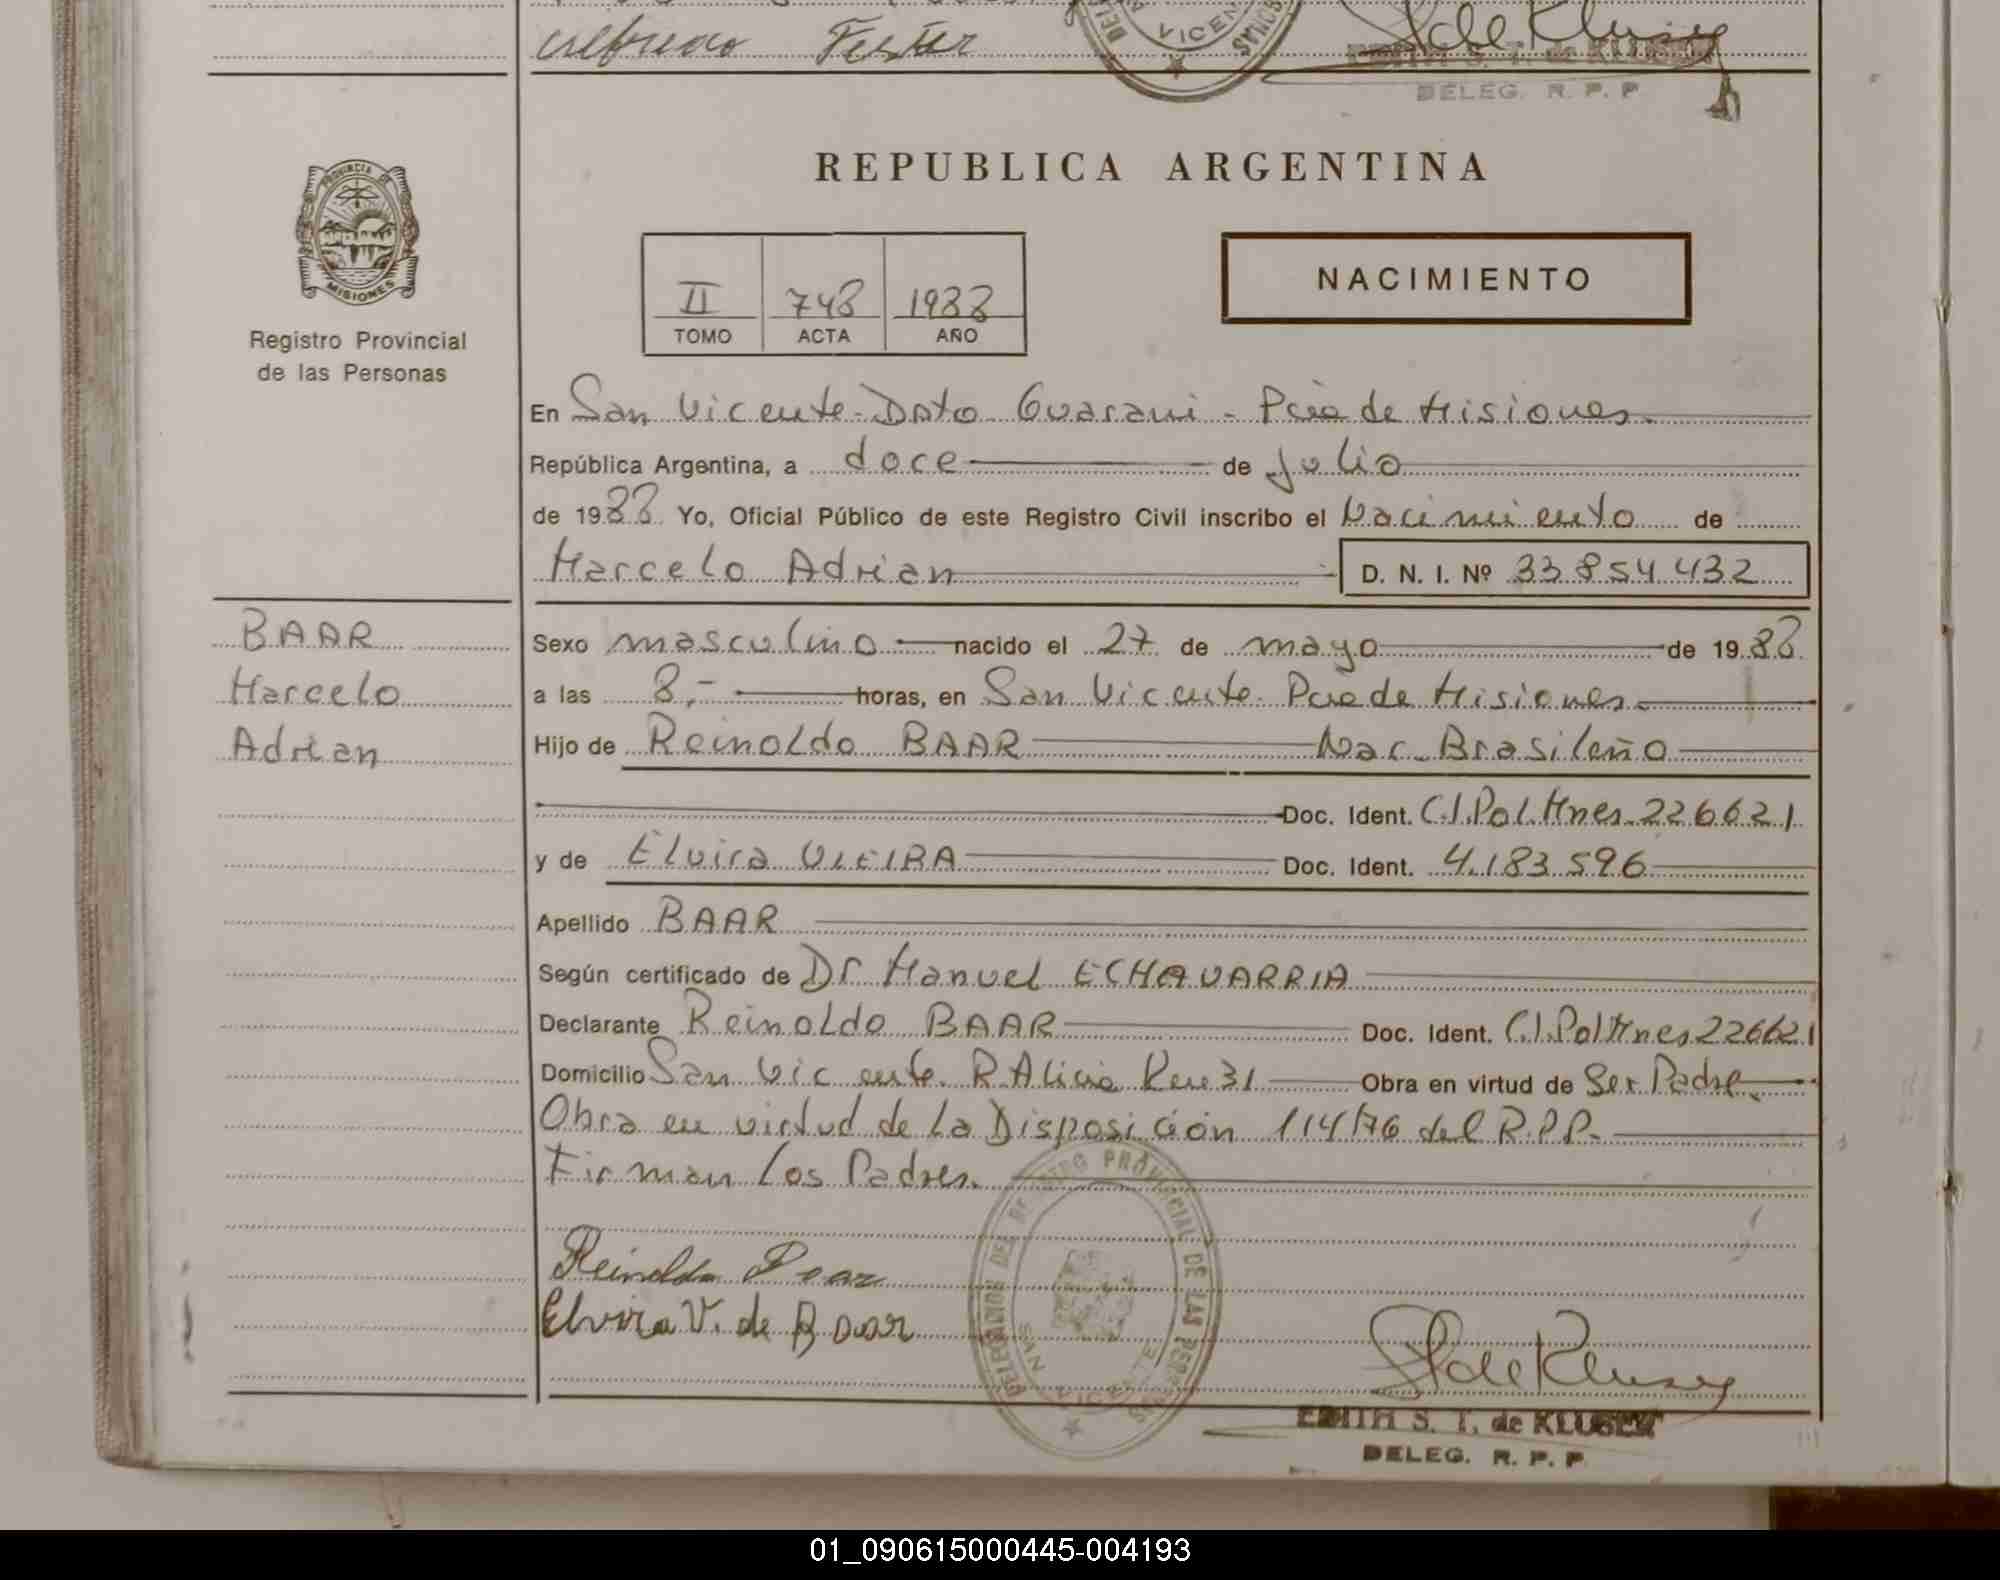 Alfredo Fester
VICEN
S. de Kluser
EDITH S. T. de KLUSER
DELEG. R. P. P
PROVINCIA DE
MISIONES
Registro Provincial
de las Personas
REPUBLICA ARGENTINA
II 748 1988
TOMO ACTA AÑO
NACIMIENTO
En San Vicente - Dpto Guarani - Pcia de Misiones.
República Argentina, a doce de Julio
de 1988 Yo, Oficial Público de este Registro Civil inscribo el Nacimiento de
Marcelo Adrian D. N. I. Nº 33 854 432
BAAR
Marcelo
Adrian
Sexo masculino nacido el 27 de mayo de 1988
a las 8,- horas, en San Vicente. Pcia de Misiones.
Hijo de Reinoldo BAAR Nac. Brasileño
Doc. Ident. C.I.Pol.Mnes.226621
y de Elvira VIEIRA Doc. Ident. 4.183.596
Apellido BAAR
Según certificado de Dr. Manuel ECHAVARRIA
Declarante Reinoldo BAAR Doc. Ident. C.I.Pol Mnes 226621
Domicilio San Vicente. R Alicia Km 31 Obra en virtud de Ser Padre.
Obra en virtud de la Disposición 114/76 del R.P.P.
Firman los Padres.
Reinoldo Baar
Elvira V. de Baar
DELEGACION DEL REGISTRO PROVINCIAL DE LAS PERSONAS
SAN VICENTE
S. de Kluser
EDITH S. T. de KLUSER
DELEG. R. P. P
01_090615000445-004193